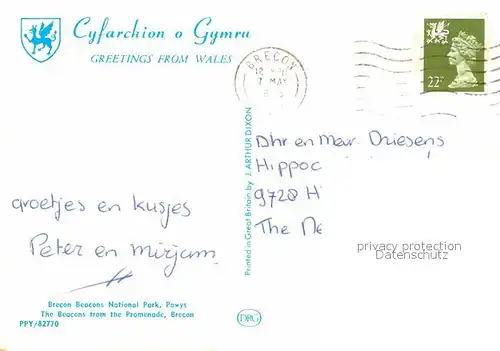 Cyfarchion o Gymru
GREETINGS FROM WALES
BRECON
7 MAY
22P
Dhr en Mevr Driesens
Hippoc
9728 H
The Ne
groetjes en kusjes
Peter en Mirjam
Printed in Great Britain by J. ARTHUR DIXON
privacy protection
Datenschutz
Brecon Beacons National Park, Powys
The Beacons from the Promenade, Brecon
PPY/82770
DRG